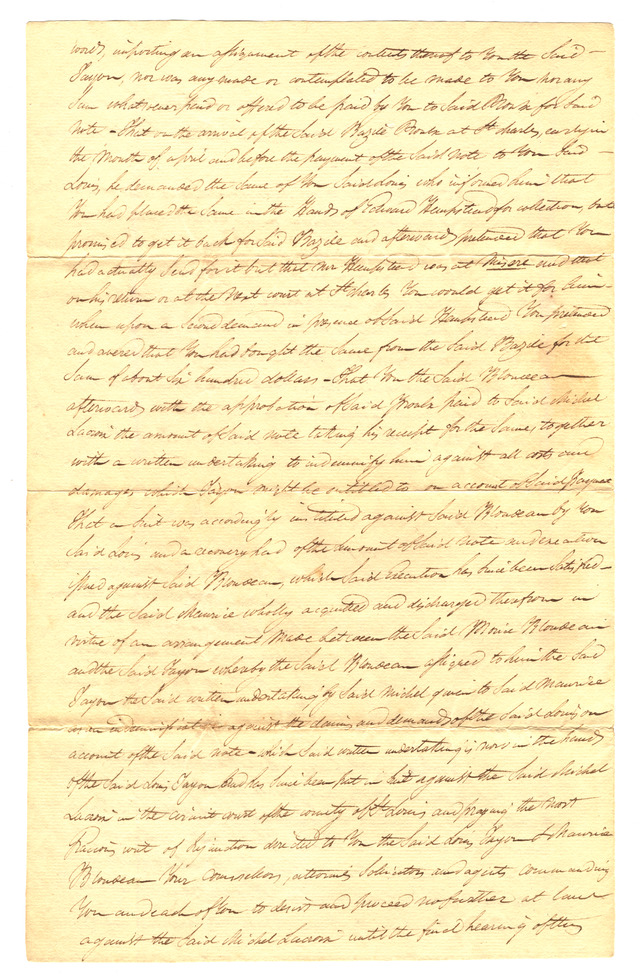 words, importing an assignment of the contents thereof to You the Said
Tayon, nor was any made or contemplated to be made to You nor any
Sum whatever paid or offered to be paid by You to Said Proulx for Said
note – That on the arrival of the Said Bazile Proulx at St Charles, early in
the Month of april and before the payment of the Said note to You Said
Louis, he demanded the Same of You Said Louis who informed him that
You had placed the Same in the Hands of Edward Hempstead for collection, but
promised to get it back for Said Bazile and afterwards pretended that You
had actually Send for it but that Mr Hempstead was at and that
on his return or at the next court at St Charles You would get it for him
when upon a Second demand in presence of Said Hempstead You pretended
and averred that You had bought the Same from the Said Bazile for the
Sum of about Six hundred dollars – That You the Said Blondeau
afterwards with the approbation of Said Proulx paid to Said Michel
Lacroix the amount of Said note taking his receipt for the Same, together
with a written undertaking to indemnify him against all costs and
damages which Tayon might be entitled to on account of Said
That a Suit was accordingly instituted against Said Blondeau by You
Said Louis and a recovery had of the amount of Said note and execution
issued against Said Blondeau, which Said Execution has Since been Satisfied –
and the Said Maurice wholly acquitted and discharged therefrom in
virtue of an arrangement made between the Said Morice Blondeau
and the Said Tayon whereby the Said Blondeau assigned to him the Said
Tayon the Said written undertaking by Said Michel given to Said Maurice
as an indemnification against the claims and demands of the Said Louis on
account of the Said note – which Said written undertaking is now in the hands
of the Said Louis Tayon and has Since been put in Suit against the Said Michel
Lacroix in the circuit court of the county of St Louis and praying the most
Gracious writ of Injunction directed to You the Said Louis Tayon & Maurice
Blondeau Your counsellors, attornies Solicitors and agents commanding
You and each of You to desist and proceed no further at law
against the Said Michel Lacroix until the final hearing of the